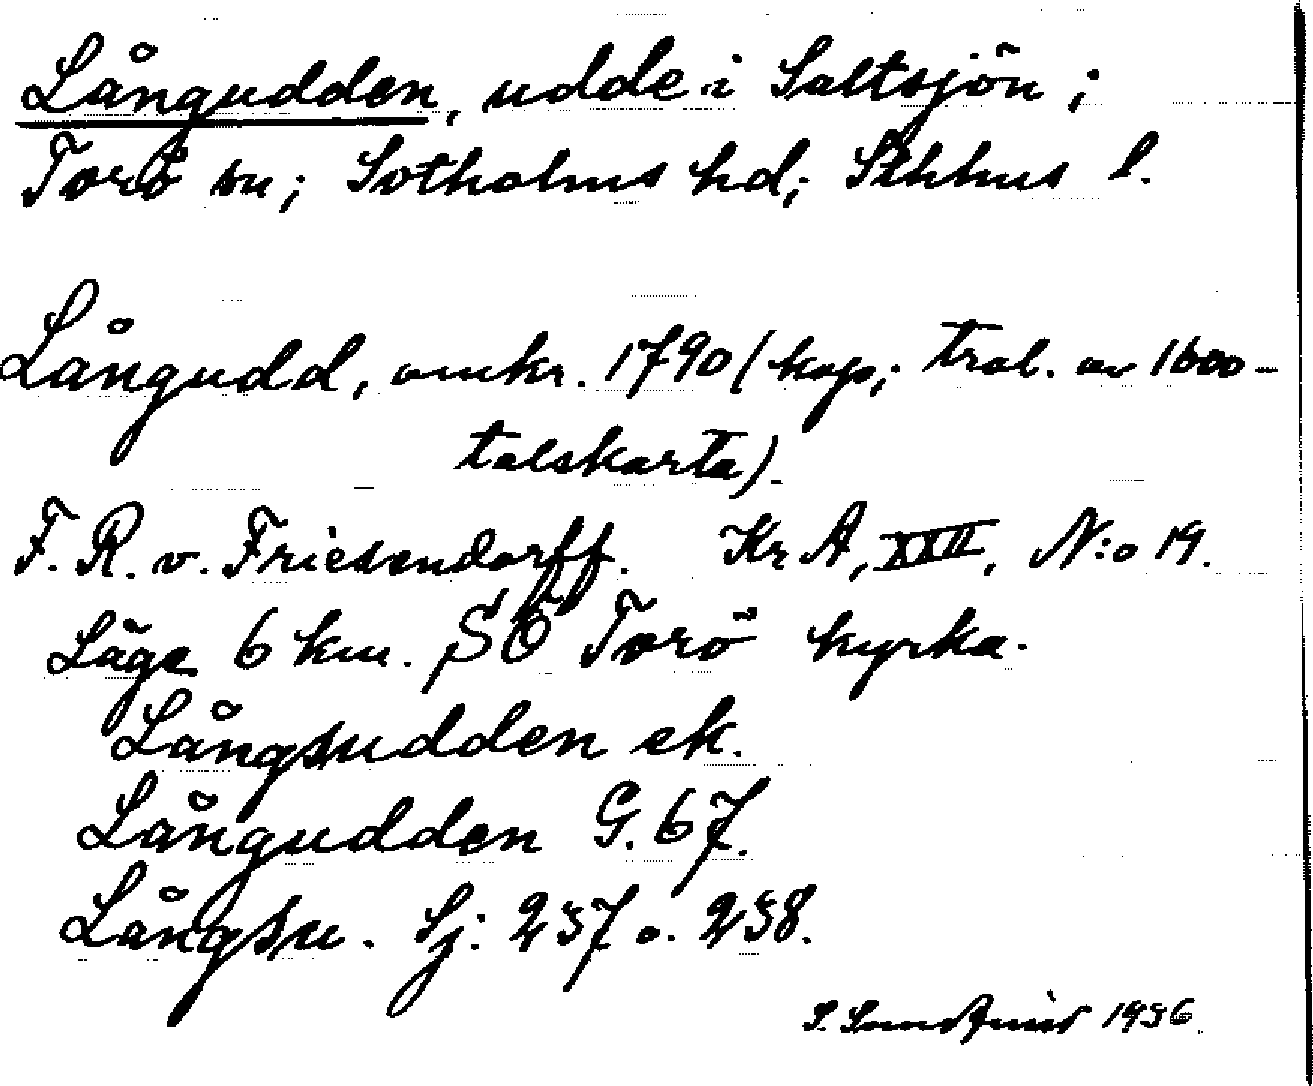 Långudden, udde i Saltsjön;
Torö sn; Sotholms hd; Sthlms l.
Långudd, omkr. 1790 (kop; trol. av 1600-
talskarta).
F. R. v. Friesendorff. Kr A, XIII, N:o 19.
Läge 6 km. SÖ Torö kyrka.
Långsudden ek.
Långudden G. 67.
Långsu. Sj: 237 o. 238.
S. 1936